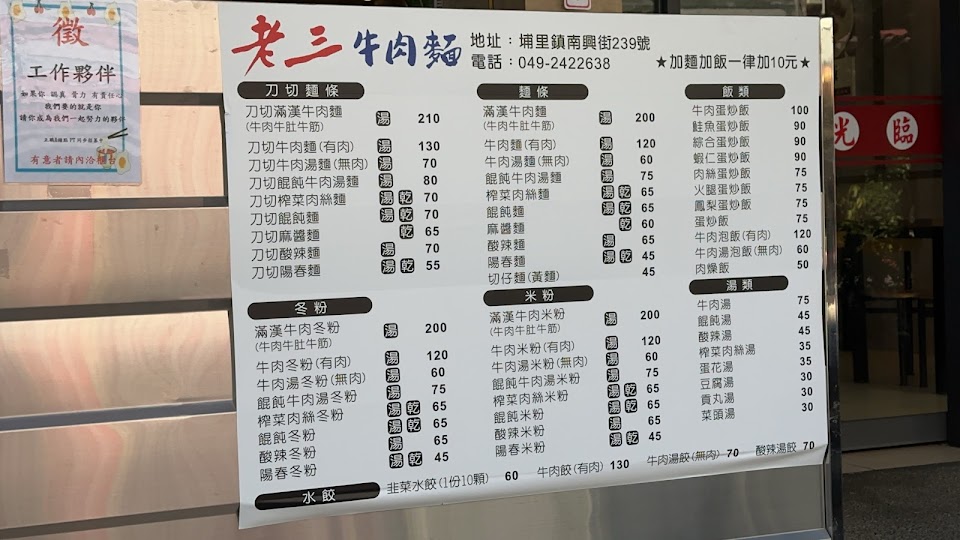 徵
工作夥伴
如果你 認真 肯力 有責任心
我們要的就是你
請你成為我們一起努力的夥伴
有意者請內洽櫃台
老三牛肉麵
地址：埔里鎮南興街239號
電話：049-2422638
★加麵加飯一律加10元★
刀切麵條
刀切滿漢牛肉麵 湯 210
(牛肉牛肚牛筋)
刀切牛肉麵(有肉) 湯 130
刀切牛肉湯麵(無肉) 湯 70
刀切餛飩牛肉湯麵 湯 80
刀切榨菜肉絲麵 湯 乾 70
刀切餛飩麵 湯 乾 70
刀切麻醬麵 乾 65
刀切酸辣麵 湯 70
刀切陽春麵 湯 乾 55
麵條
滿漢牛肉麵 湯 200
(牛肉牛肚牛筋)
牛肉麵(有肉) 湯 120
牛肉湯麵(無肉) 湯 60
餛飩牛肉湯麵 湯 75
榨菜肉絲麵 湯 乾 65
餛飩麵 湯 乾 65
麻醬麵 乾 60
酸辣麵 湯 65
陽春麵 湯 乾 45
切仔麵(黃麵) 45
飯類
牛肉蛋炒飯 100
鮭魚蛋炒飯 90
綜合蛋炒飯 90
蝦仁蛋炒飯 90
肉絲蛋炒飯 75
火腿蛋炒飯 75
鳳梨蛋炒飯 75
蛋炒飯 75
牛肉泡飯(有肉) 120
牛肉湯泡飯(無肉) 60
肉燥飯 50
冬粉
滿漢牛肉冬粉 湯 200
(牛肉牛肚牛筋)
牛肉冬粉(有肉) 湯 120
牛肉湯冬粉(無肉) 湯 60
餛飩牛肉湯冬粉 湯 75
榨菜肉絲冬粉 湯 乾 65
餛飩冬粉 湯 乾 65
酸辣冬粉 湯 65
陽春冬粉 湯 乾 45
米粉
滿漢牛肉米粉 湯 200
(牛肉牛肚牛筋)
牛肉米粉(有肉) 湯 120
牛肉湯米粉(無肉) 湯 60
餛飩牛肉湯米粉 湯 75
榨菜肉絲米粉 湯 乾 65
餛飩米粉 湯 乾 65
酸辣米粉 湯 65
陽春米粉 湯 乾 45
湯類
牛肉湯 75
餛飩湯 45
酸辣湯 45
榨菜肉絲湯 35
蛋花湯 35
豆腐湯 30
貢丸湯 30
菜頭湯 30
水餃
韭菜水餃(1份10顆) 60 牛肉餃(有肉) 130 牛肉湯餃(無肉) 70 酸辣湯餃 70
光臨